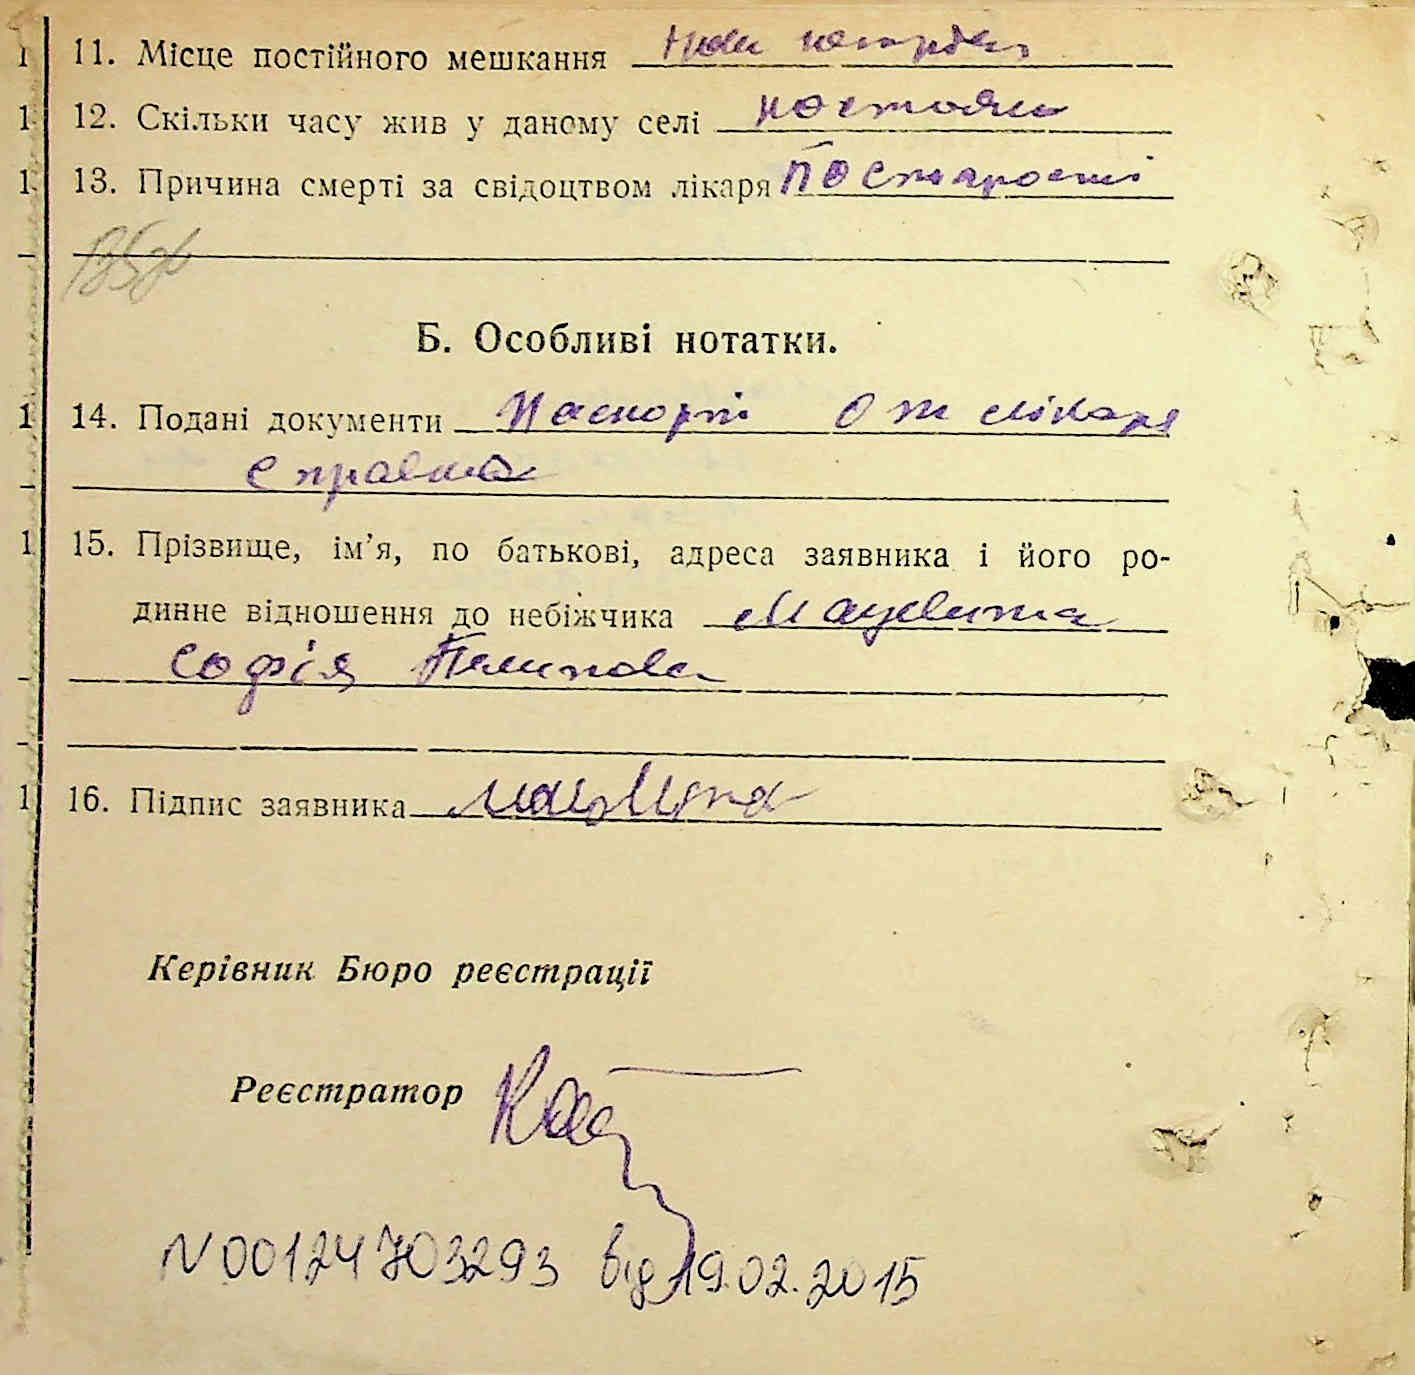 1 11. Місце постійного мешкання
1 12. Скільки часу жив у даному селі постоянно
1 13. Причина смерті за свідоцтвом лікаря По старості
Б. Особливі нотатки.
1 14. Подані документи Паспорт От лікаря
справка
1 15. Прізвище, ім'я, по батькові, адреса заявника і його ро-
динне відношення до небіжчика
Софія
1 16. Підпис заявника
Керівник Бюро реєстрації
Реєстратор
N 00124703293 від 19.02.2015